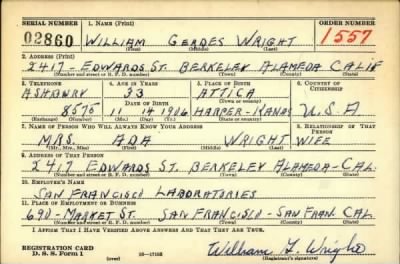 SERIAL NUMBER 1. NAME (Print) ORDER NUMBER
02860 WILLIAM GERDES WRIGHT 1557
(First) (Middle) (Last)
2. ADDRESS (Print)
2417 - EDWARDS ST. BERKELEY ALAMEDA CALIF
(Number and street or R. F. D. number) (Town) (County) (State)
3. TELEPHONE 4. AGE IN YEARS 5. PLACE OF BIRTH 6. COUNTRY OF CITIZENSHIP
ASHBWRY 33 ATTICA
DATE OF BIRTH (Town or county)
8575 11 14 1906 HARPER-KANAS U.S.A
(Exchange) (Number) (Mo.) (Day) (Yr.) (State or country)
7. NAME OF PERSON WHO WILL ALWAYS KNOW YOUR ADDRESS 8. RELATIONSHIP OF THAT PERSON
MRS ADA WRIGHT WIFE
(Mr., Mrs., Miss) (First) (Middle) (Last)
9. ADDRESS OF THAT PERSON
2417 EDWARDS ST. BERKELEY ALAMEDA-CAL.
(Number and street or R. F. D. number) (Town) (County) (State)
10. EMPLOYER'S NAME
SAN FRANCISCO LABORATORIES
11. PLACE OF EMPLOYMENT OR BUSINESS
690-MARKET ST SAN FRANCISCO-SAN FRAN. CAL
(Number and street or R. F. D. number) (Town) (County) (State)
I AFFIRM THAT I HAVE VERIFIED ABOVE ANSWERS AND THAT THEY ARE TRUE.
REGISTRATION CARD
D. S. S. Form 1 (over) 16-17105 William G. Wright
(Registrant's signature)